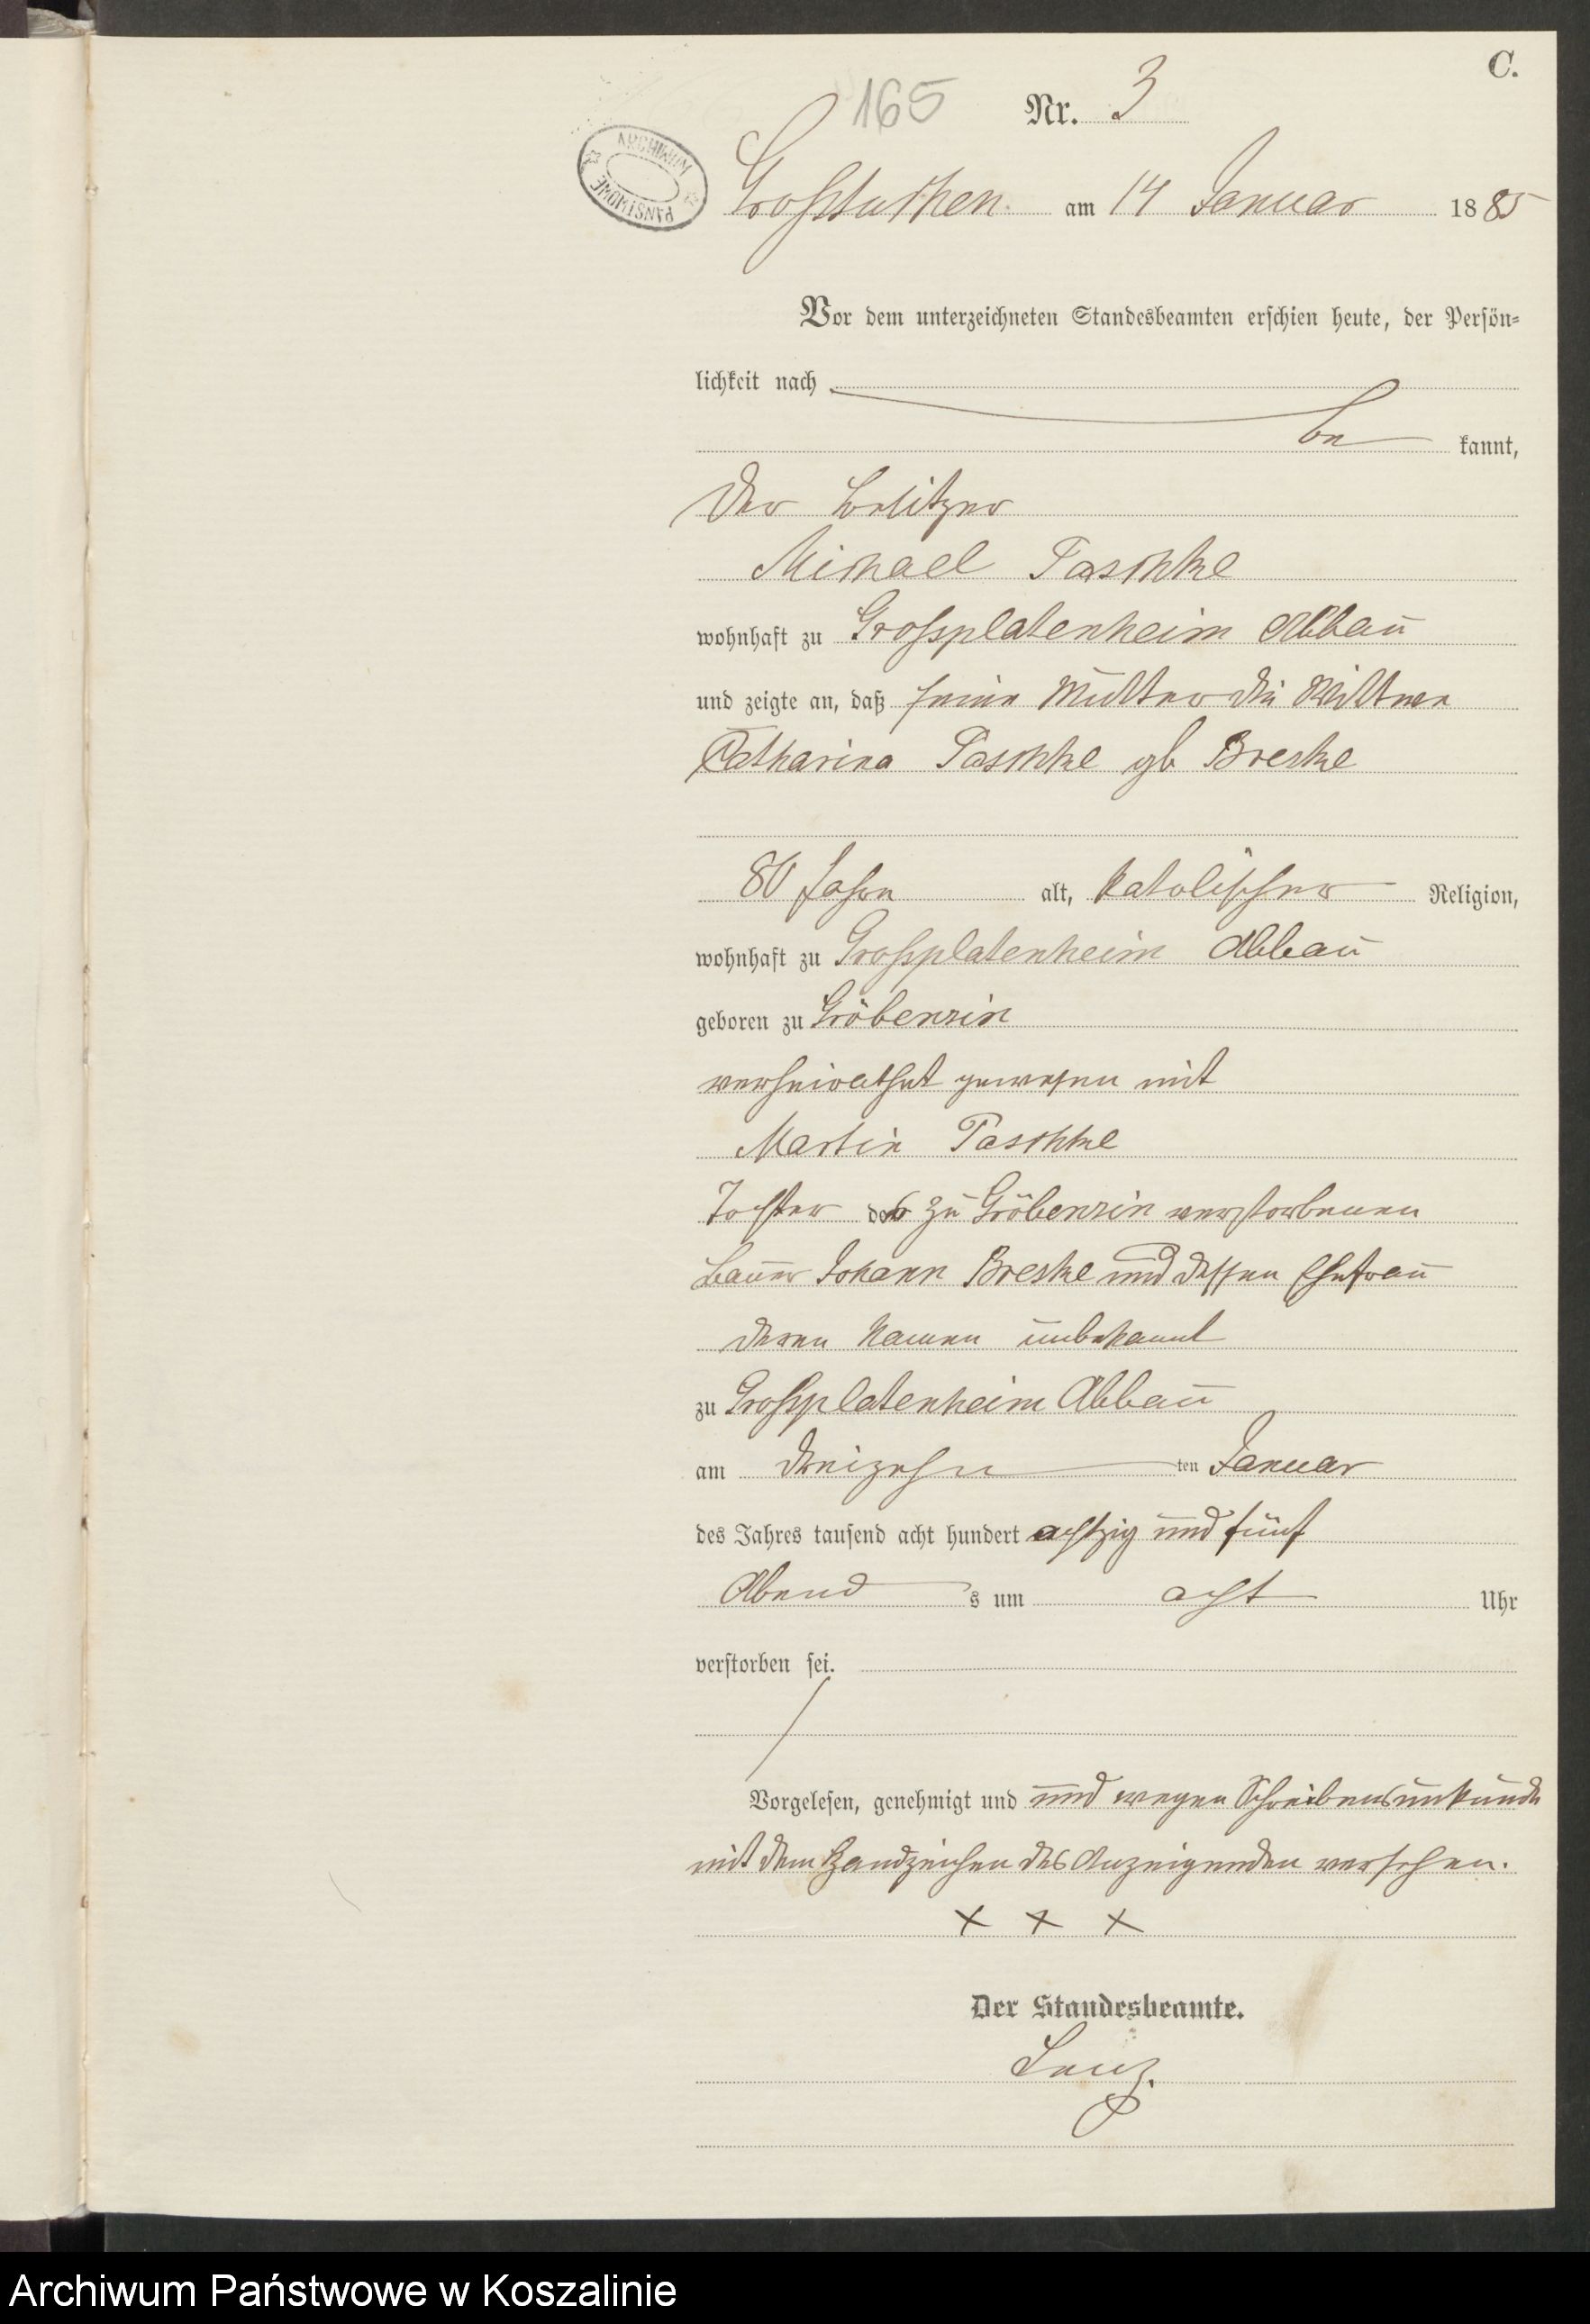 C.
165 Nr. 3
ARCHIWUM PAŃSTWOWE
Grosstuchen am 14 Januar 1885
Vor dem unterzeichneten Standesbeamten erschien heute, der Persön-
lichkeit nach
be kannt,
der Besitzer
Michael Paschke
wohnhaft zu Grossplatenheim Abbau
und zeigte an, daß seine Mutter die Wittwe
Catharina Paschke gb Breske
80 Jahre alt, katolischer Religion,
wohnhaft zu Grossplatenheim Abbau
geboren zu Gröbenzin
verheirathet gewesen mit
Martin Paschke
Tochter des zu Gröbenzin verstorbenen
Bauer Johann Breske und dessen Ehefrau
deren Namen unbekannt
zu Grossplatenheim Abbau
am dreizehn ten Januar
des Jahres tausend acht hundert achtzig und fünf
Abend s um acht Uhr
verstorben sei.
Vorgelesen, genehmigt und und wegen Schreibensunkunde
mit dem Handzeichen des Anzeigenden versehen.
x x x
Der Standesbeamte.
Lenz.
Archiwum Państwowe w Koszalinie